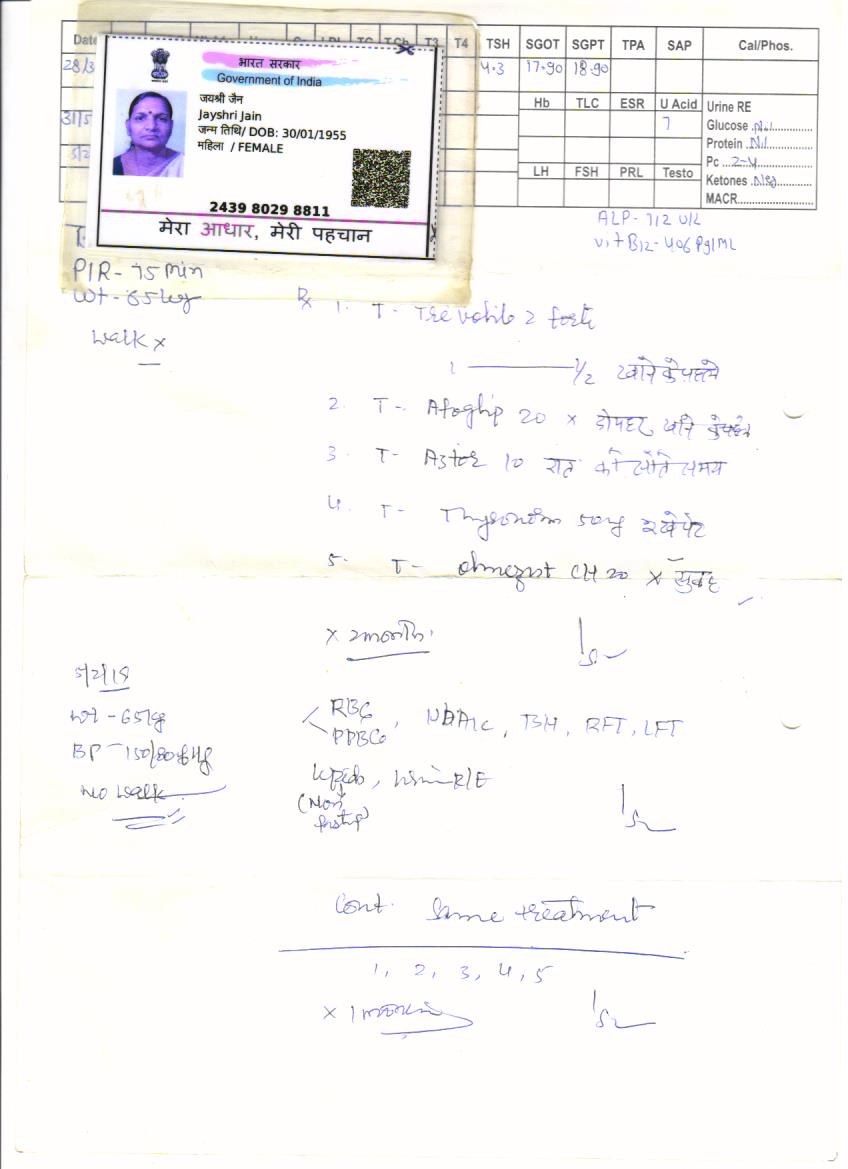 Date T3 T4 TSH SGOT SGPT TPA SAP Cal/Phos.
28/3 4.3 17.90 18.90
Hb TLC ESR U Acid Urine RE
31/5 7 Glucose Nil
Protein Nil
5/2 Pc 2-4
LH FSH PRL Testo Ketones Neg
MACR
भारत सरकार
Government of India
जयश्री जैन
Jayshri Jain
जन्म तिथि/ DOB: 30/01/1955
महिला / FEMALE
2439 8029 8811
मेरा आधार, मेरी पहचान
ALP- 112 U/L
vit B12- 406 Pg/ML
P/R- 75 min
Wt- 65 kg
Walk x
Rx 1. T- 2 forte
1 1/2 खाने के पहले
2. T- 20 x दोपहर खाने के पहले
3. T- Astor 10 रात को सोते समय
4. T- Thyronorm 50mg खाली पेट
5. T- CH 20 x सुबह
x 2 month
5/2/18
Wt - 65 kg
BP - 150/80
No walk
RBG
PPBG, HbA1c, TSH, RFT, LFT
Lipid, Urine R/E
(Non
fasting)
Cont. Same treatment
1, 2, 3, 4, 5
x 1 month